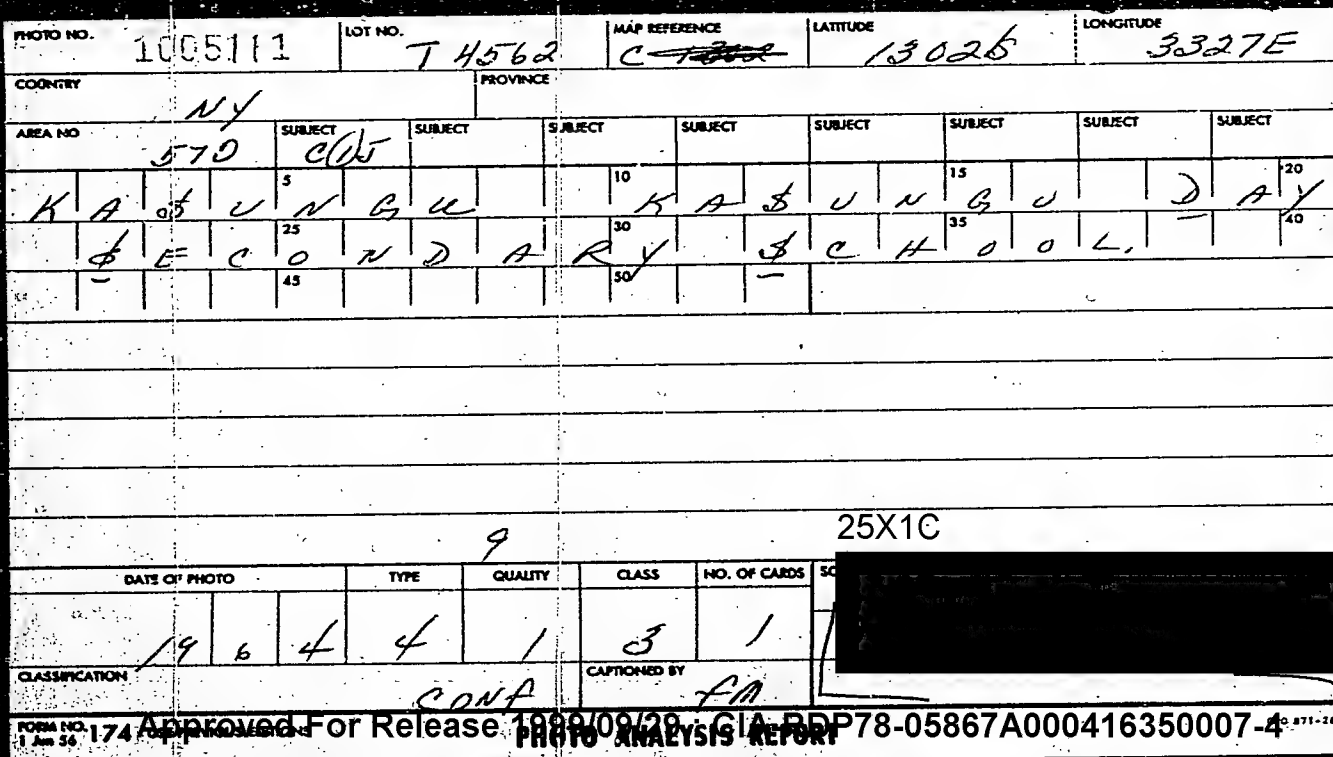 PHOTO NO. 1005111 LOT NO. T 4562 MAP REFERENCE C LATITUDE 1302S LONGITUDE 3327E
COUNTRY NY PROVINCE
AREA NO 57D SUBJECT C(1)5 SUBJECT SUBJECT SUBJECT SUBJECT SUBJECT SUBJECT SUBJECT
5 10 15 20
KA$UNGU KA$UNGU DAY
25 30 35 40
$ECONDARY $CHOOL.
45 50
9
25X1C
DATE OF PHOTO TYPE QUALITY CLASS NO. OF CARDS
1964 4 1 3 1
CLASSIFICATION CONF CAPTIONED BY FM
FORM NO. 174
1 Jun 56
Approved For Release 1999/09/29 : CIA-RDP78-05867A000416350007-4
PHOTO ANALYSIS REPORT